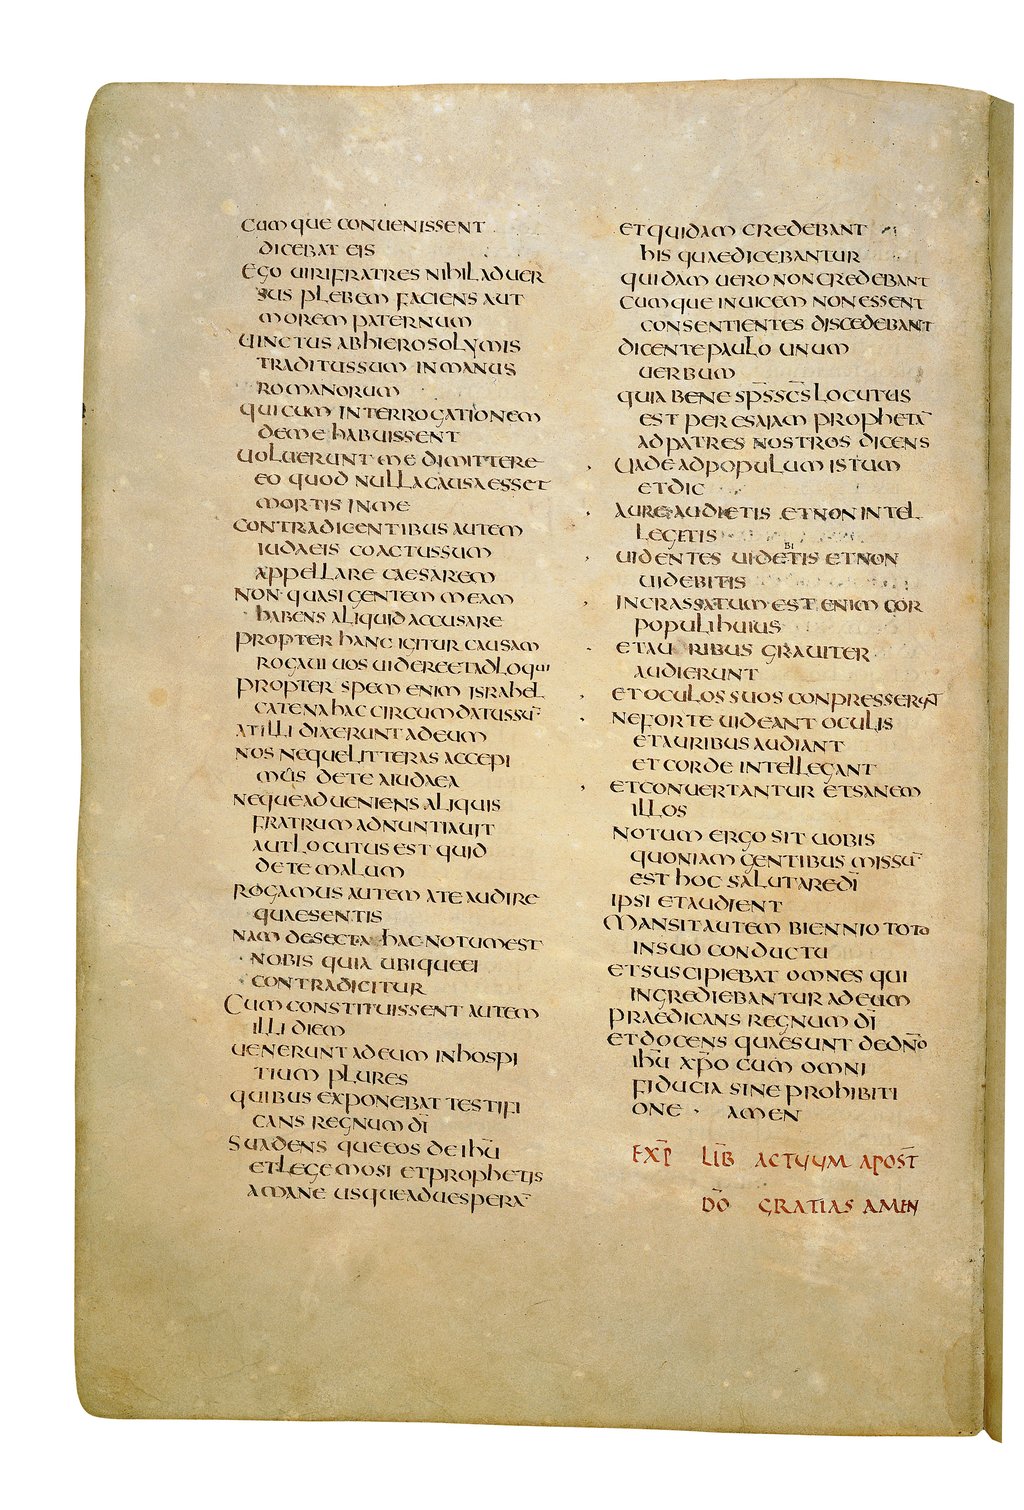 Cumque conuenissent
dicebat eis
Ego uirifratres nihiladuer
sus plebem faciens aut
morem paternum
uinctus abhierosolymis
traditussum inmanus
romanorum
quicum interrogationem
deme habuissent
uoluerunt me dimittere
eo quod nullacausaesset
mortis inme
contradicentibus autem
iudaeis coactussum
appellare caesarem
non quasi gentem meam
habens aliquidaccusare
propter hanc igitur causam
rogaui uos uidereetadloqui
propter spem enim israhel
catenahac circumdatussū
atilli dixeruntadeum
nos nequelitteras accepi
mus dete aiudaea
nequeadueniens aliquis
fratrum adnuntiauit
autlocutusest quid
dete malum
rogamus autem ate audire
quaesentis
nam desecta hac notumest
nobis quia ubiqueei
contradicitur
Cumconstituissent autem
illi diem
uenerunt adeum inhospi
tium plures
quibus exponebat testifi
cans regnum dī
Suadens queeos deihū
etlege mosi etprophetis
amane usqueaduesperā
etquidam credebant
his quaedicebantur
quidam uero noncredebant
cumque inuicem nonessent
consentientes discedebant
dicentepaulo unum
uerbum
quia bene sp̄s sc̄s locutus
est per esaiam prophetā
adpatres nostros dicens
Uadeadpopulum istum
etdic
aure audietis etnonintel
legitis
uidentes uidetis etnon
bi
uidebitis
incrassatum est enim cor
populihuius
etau ribus grauiter
audierunt
etoculos suos conpresserunt
neforte uideant oculis
etauribus audiant
et corde intellegant
etconuertantur etsanem
illos
notum ergo sit uobis
quoniam gentibus missū
est hoc salutaredī
ipsi etaudient
Mansitautem biennio toto
insuo conductu
etsuscipiebat omnes qui
ingrediebantur adeum
praedicans regnum dī
etdocens quaesunt dedn̄o
ihū xp̄o cum omni
fiducia sine prohibiti
one · amen
exp̄ lib̄ actuum apost̄
dō gratias amen